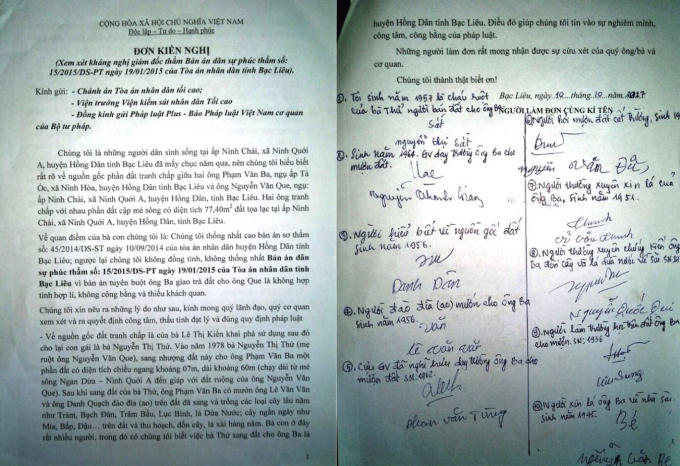 CỘNG HÒA XÃ HỘI CHỦ NGHĨA VIỆT NAM
Độc lập – Tự do – Hạnh phúc
ĐƠN KIẾN NGHỊ
(Xem xét kháng nghị giám đốc thẩm Bản án dân sự phúc thẩm số:
15/2015/DS-PT ngày 19/01/2015 của Tòa án nhân dân tỉnh Bạc Liêu).
Kính gửi: - Chánh án Tòa án nhân dân tối cao;
- Viện trưởng Viện kiểm sát nhân dân Tối cao
- Đồng kính gửi Pháp luật Plus - Báo Pháp luật Việt Nam cơ quan
của Bộ tư pháp.
Chúng tôi là những người dân sinh sống tại ấp Ninh Chài, xã Ninh Quới
A, huyện Hồng Dân tỉnh Bạc Liêu đã mấy chục năm qua, nên chúng tôi hiểu biết
rất rõ về nguồn gốc phần đất tranh chấp giữa hai ông Phạm Văn Ba, ngụ ấp Tà
Óc, xã Ninh Hòa, huyện Hồng Dân tỉnh Bạc Liêu và ông Nguyễn Văn Que, ngụ:
ấp Ninh Chài, xã Ninh Quới A, huyện Hồng Dân, tỉnh Bạc Liêu. Hai ông tranh
chấp với nhau phần đất cặp mé sông có diện tích 77,40m² đất tọa lạc tại ấp Ninh
Chài, xã Ninh Quới A, huyện Hồng Dân, tỉnh Bạc Liêu.
Về quan điểm của bà con chúng tôi là: Chúng tôi thống nhất cao bản án sơ thẩm
số: 45/2014/DS-ST ngày 10/09/2014 của tòa án nhân dân huyện Hồng Dân tỉnh
Bạc Liêu; ngược lại chúng tôi không đồng tình, không thống nhất Bản án dân
sự phúc thẩm số: 15/2015/DS-PT ngày 19/01/2015 của Tòa án nhân dân tỉnh
Bạc Liêu vì bản án tuyên buộc ông Ba giao trả đất cho ông Que là không hợp
tình hợp lí, không công bằng và thiếu khách quan.
Chúng tôi xin nêu ra những lý do như sau, kính mong quý lãnh đạo, quý cơ quan
xem xét và ra quyết định công tâm, thấu tình đạt lý và đúng quy định pháp luật
- Về nguồn gốc đất tranh chấp là của bà Lê Thị Kiền khai phá sử dụng sau đó
cho lại con gái là bà Nguyễn Thị Thứ. Vào năm 1978 bà Nguyễn Thị Thứ (mẹ
ruột ông Nguyễn Văn Que), sang nhượng đất này cho ông Phạm Văn Ba một
phần đất có diện tích chiều ngang khoảng 07m, dài khoảng 60m (chạy dài từ mé
sông Ngan Dừa – Ninh Quới A đến giáp với đất ruộng của ông Nguyễn Văn
Que). Sau khi sang đất của bà Thứ, ông Phạm Văn Ba có mướn ông Lê Văn Văn
và ông Danh Quạch đào đìa (ao) trên đất đã sang và trồng các loại cây lâu năm
như Tràm, Bạch Đàn, Trâm Bầu, Lục Bình, lá Dừa Nước; cây ngắn ngày như
Mía, Bắp, Đậu... trên đất và thu hoạch, đốn cây, lá xài hàng năm. Bà con ở đây
rất nhiều người, trong đó có chúng tôi biết việc bà Thứ sang đất cho ông Ba là
1
huyện Hồng Dân tỉnh Bạc Liêu. Điều đó giúp chúng tôi tin vào sự nghiêm minh,
công tâm, công bằng của pháp luật.
Những người làm đơn rất mong nhận được sự cứu xét của quý ông/bà và
cơ quan.
Chúng tôi thành thật biết ơn!
Bạc Liêu, ngày 10 tháng 10 năm 2017
NGƯỜI LÀM ĐƠN CÙNG KÍ TÊN
①. Tôi sinh năm 1957 là cháu ruột
của bà Thứ người bán đất cho ông Ba
sắt
nguyễn thị sắt
②. Sinh năm 1964. GV dạy trường ông Ba cho
mướn đất.
③. Người hiểu biết về nguồn gốc đất
sinh năm 1956.
Danh Dân
④. Người đào đìa (ao) mướn cho ông Ba
Sinh năm 1956.
Văn
Lê văn
⑤. Cựu GV đã nghỉ hưu dạy trường ông Ba cho
mướn đất. SN: 1962.
phan văn Tùng
⑥ Người hỏi mướn đất cất trường, Sinh
nguyễn Văn
⑦. Người thường xuyên xin lá của
ông Ba, sinh năm 1951.
⑧. Người thường xuyên chứng kiến ông
Ba đốn cây và lá dừa nước về sài SN:
Nguyễn Quốc
⑨. Người làm
cho mướn. SN: 1956
⑩. Người xin lá ông Ba về nhà sài.
Sinh năm 1945.
Bé